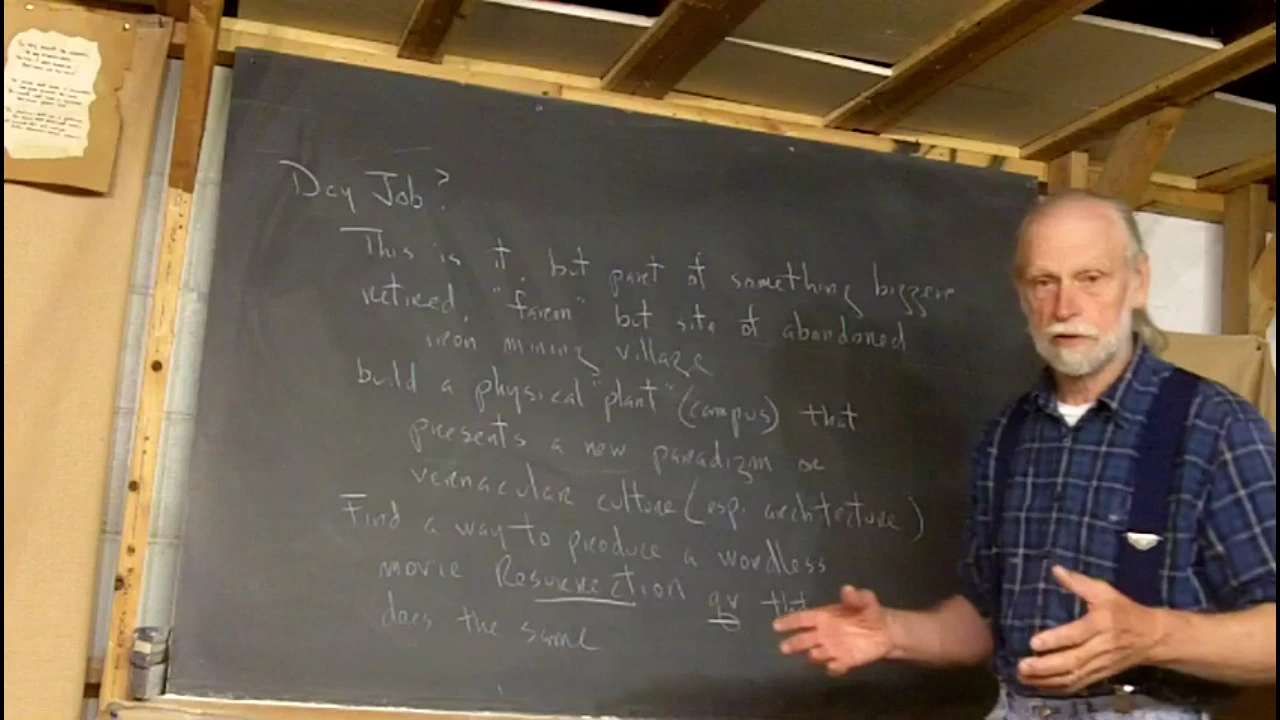 Day Job?
This is it, but part of something bigger
retired, "farm" but site of abandoned
iron mining village
build a physical "plant" (campus) that
presents a new paradigm or
vernacular culture (esp. architecture)
Find a way to produce a wordless
movie Resurrection qv that
does the same